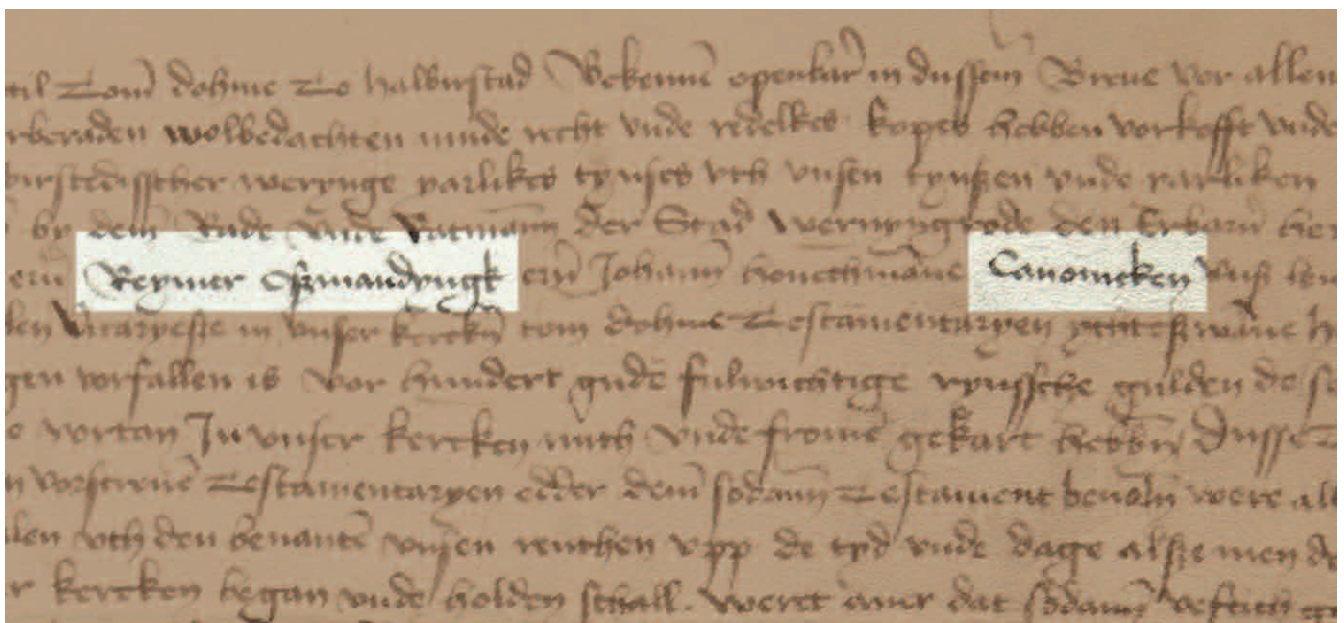 til Tom dohme To halbirstad Bekenne openbar in dussem Breue Vor allen
rberaden wolbedachten mude recht vnde redelkes kopes hebben vorkofft vnde
birstedisscher werynge yarlikes tynses vth vnsen tynßen vnde yarliken
by dem Rade vnde Ratmann der Stad wernyngrode den Erbarn her
ern Reymer Oßmandyngk ern Johann honethmane Canonicken vnß
den Vicaryeste in vnser kercken tom dohme Testamentaryen h
gen vorfallen is vor hundert gude fulwichtige rynssche gulden de
vortan In vnser kercken nuth vnde fromen gekart hebbn Dusse
n vorscreuē Testamentaryen edder dem sodann Testament were
den vth den benante vnsen renthen vpp de tyd vnde dage alße men
r kercken began vnde holden schall. weret auer dat sodann